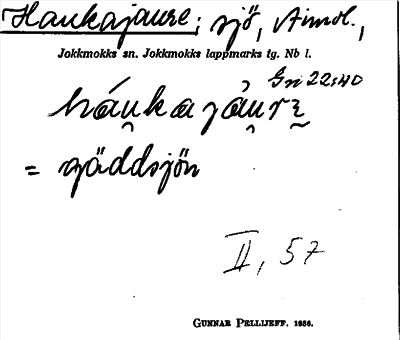 Haukajaure; sjö, Aimol.,
Jokkmokks sn. Jokkmokks lappmarks tg. Nb l.
Gn 22:40
háu̯kajáu̯rɛ̰
= gäddsjön
II, 57
GUNNAR PELLIJEFF. 1956.